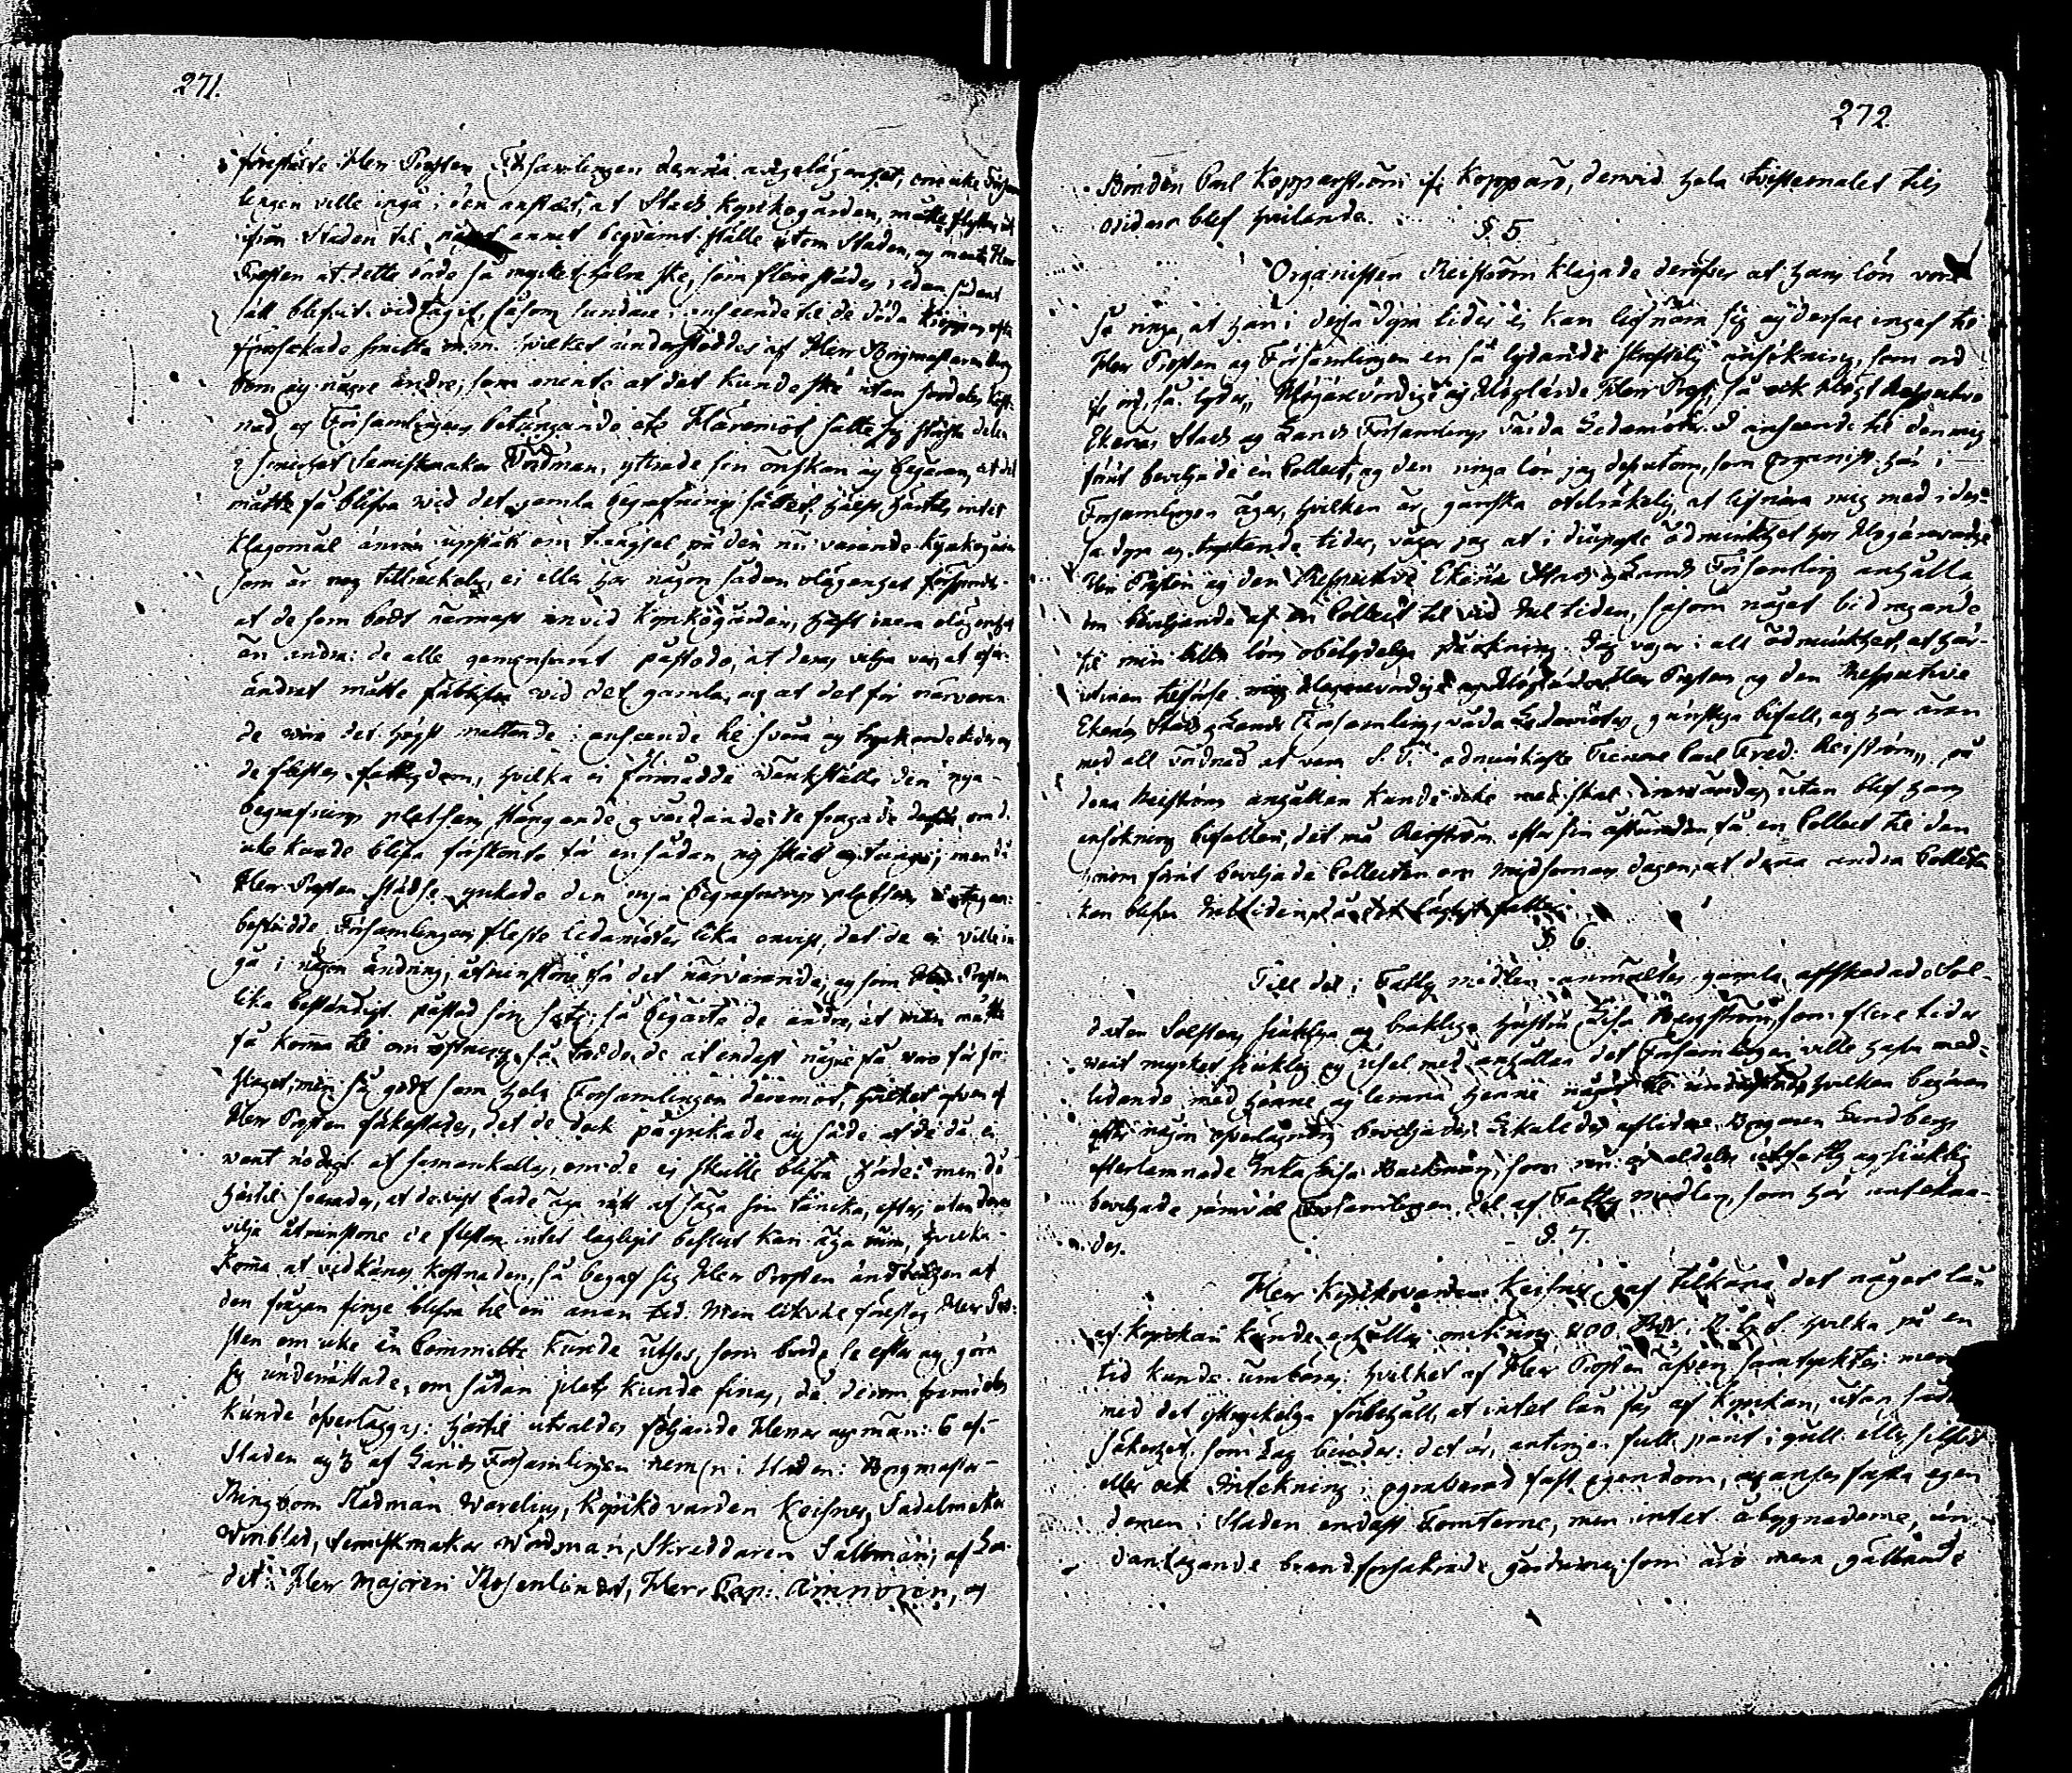 271.
föreställte Herr Prosten Församlingen denna angelägenhet, om icke Försam
lingen ville ingå i den anstalt, at Stads Kyrkogården, måtte flyttas ut
ifrån Staden til något annat beqvämt ställe utom Staden, og mente Herr
Prosten at dette borde så mycket hälre ske, som flere städer redan sådant
sätt blifvit vidtagit, såsom sundare i anseende til de döda kroppars
förorsakade smitta m.m. hvilket understöddes af Herr Borgmästaren Ring
bom og några andre, som mente at det kunde ske utan särdeles kost-
nad og Församlingens betungande etc Häremot satte sig största delen
måtte få blifva vid det gamla begrafnings sättet, hälst härtils intet
klagomål ännu uppstått om trängsel på den nu varande kyrkogården
som är nog tillräckelig, ei eller har någon sådan olägenhet försports,
at de som bodt närmast invid kyrkogården, haft mera olägenhet
än andra: de alle gemensamt påstodo, at deras vilja var, at oför-
ändrat måtte förblifva vid det gamla, og at det för närvaran-
de vore det högst mattande i anseende til svåra og tryckande tider og
de flestes fattigdom, hvilka ei förmådde värkställe den nya
begrafnings platsens stängande og vårdande: de frågade derföre, om de
icke kunde blifva förskonte för en sådan ny skatt og tunga; men då
Herr Prosten städse yrkade den nya Begrafnings platsens
bestridde Församlingens fleste Ledamöter lika envist, det de ei ville in
gå i någon ändring, åtminstone för det närvarande, og som Herr Prosten
lika beständigt påstod sin sats; så begärte de andre, at man måtte
få komma til omröstning, så trodde de at endast några få voro för för-
slaget, men så godt som hela Församlingen däremot, hvilket åfven af
Herr Prosten säkestades, det de dock påyrkade og sade at de då ei
varit nödigt at samankallas, om de ei skulle blifva hörde: men då
härtil svarades, at de vist hade äga rätt at säga sin tancka, efter utan deras
vilja åtminstone de flestas intet lagligit beslut kan äga rum, hvilka
komma at vidkännas kostnaden, så begaf sig Herr Prosten ändteligen at
den frågan finge blifva til en annan tid. Men likväl föreslog Herr Pro-
sten om icke en Committe kunde utses, som borde se efter og göra
sig underrättade, om sådan plats kunde finnas, då derom framdeles
kunde öfverläggas: härtil utvaldes föliande Herrar og män: 6 af
Staden og 3 af Lands Församlingen nemln i Staden: Borgmästar
Ringbom Rådman Warelius, Kyrkovärden Keisner, Sadelmakar
Winblad, Semskmakar Wördman, Skreddaren Sällman; af Lan-
det: Herr Majoren Rosenlindt, Herr Cap: Aminoren, og
272
Bonden Carl Kopparström ifr. Kopparö, dervid hela tvistemålet tils
vidare blef hvilande.
§ 5
Organisten Reiström klagade deröfver at hans lön vore
så ringa, at han i dessa dyra tider ej kan lifnära sig og derföre ingaf til
Herr Prosten og Församlingen en så lydande skriftelig ansökning, som ord
ifr. ord, så lyder,, Högärevördige og Höglärde Herr Prost, så ock Högt Respective
Ekenäs Stads og Lands Församlings Värda Ledamöter. I anseende til den mig
förut beviljade en Collect, og den ringa lön jag dessutom, som Organist här i
Församlingen äger, hvilken är ganska otilräkelig at lifnära mig med i des-
sa dyra og tryckande tider, vågar jag at i diupaste ödmiukhet hos Högärevördige
Herr Prosten og den Respective Ekenäs Stads og Lands Församling anhålla
om beviljande af en Collect til vid Jul tiden, såsom något bidragande
til min lilla löns obetydeliga påökning. Jag vågar i all ödmiukhet, at här-
utinnan tilförse mig Högärevördige og Höglärde Herr Prosten og den Respective
Ekenäs Stads og Lands Församlings värda Ledamöters gunstiga bifall, og har äran
med all vördnad at vara S. T. ödmiukaste Tienare Carl Fred. Reiström,, på
dena Reiströms anhållan kunde icke med skäl invändas, utan blef hans
ansökning bifallen, det må Reiström efter sin åstundan få en Collect til den
honom förut beviljade Collecten om Midsomars dagen, at dena andra Collecten
kan blifva Jultiden, då det lägligt faller.
§ 6
Till del i Fattig medlen anmältes gamla afskedade Sol-
daten Solstens siuklige og bräklige hustru Lisa Bergström, som flere tider
varit mycket siuklig og usel med anhållan det Församlingen ville hafva med-
lidande med henne og lemna henne något til understöd, hvilken begäran
efter någon öfverläggning beviljades. Likaledes aflidne Borgaren Lindbergs
efterlemnade Enka Lisa Backman, som nu är aldeles utfattig og siuklig
beviljade jämväl Församlingen del af Fattig medlen, som här anteckna-
des.
§. 7.
Herr Kyrkovärden Keisner gaf tilkänna det något lån
af Kyrkan kunde erhållas omkring 200 Rdr. R.G.S. hvilka på en
tid kunde umbäras: hvilket af Herr Prosten åfven samtycktes: men
med det uttryckeliga förbehåll, at intet lån fås af Kyrkan, utan sådan
säkerhet, som Lag biuder: det är, antingen full pant i gull eller silfver
eller ock Intekning i ograverad fast egendom, og anses fasta egen
domen i Staden endast Tomterne, men intet åbygnaderne, un-
dantagande brandförsäkrade gårdarne, som äro mera gällande